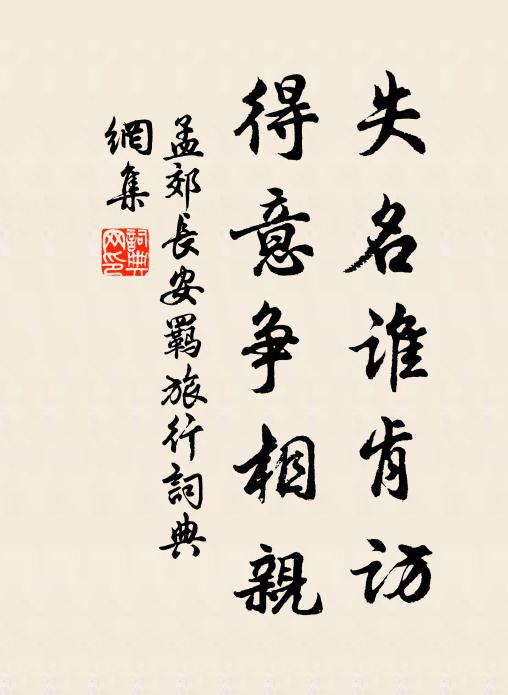 失名誰肯訪
得意爭相親
孟郊長安羇旅行詞典
網集
詞典網印